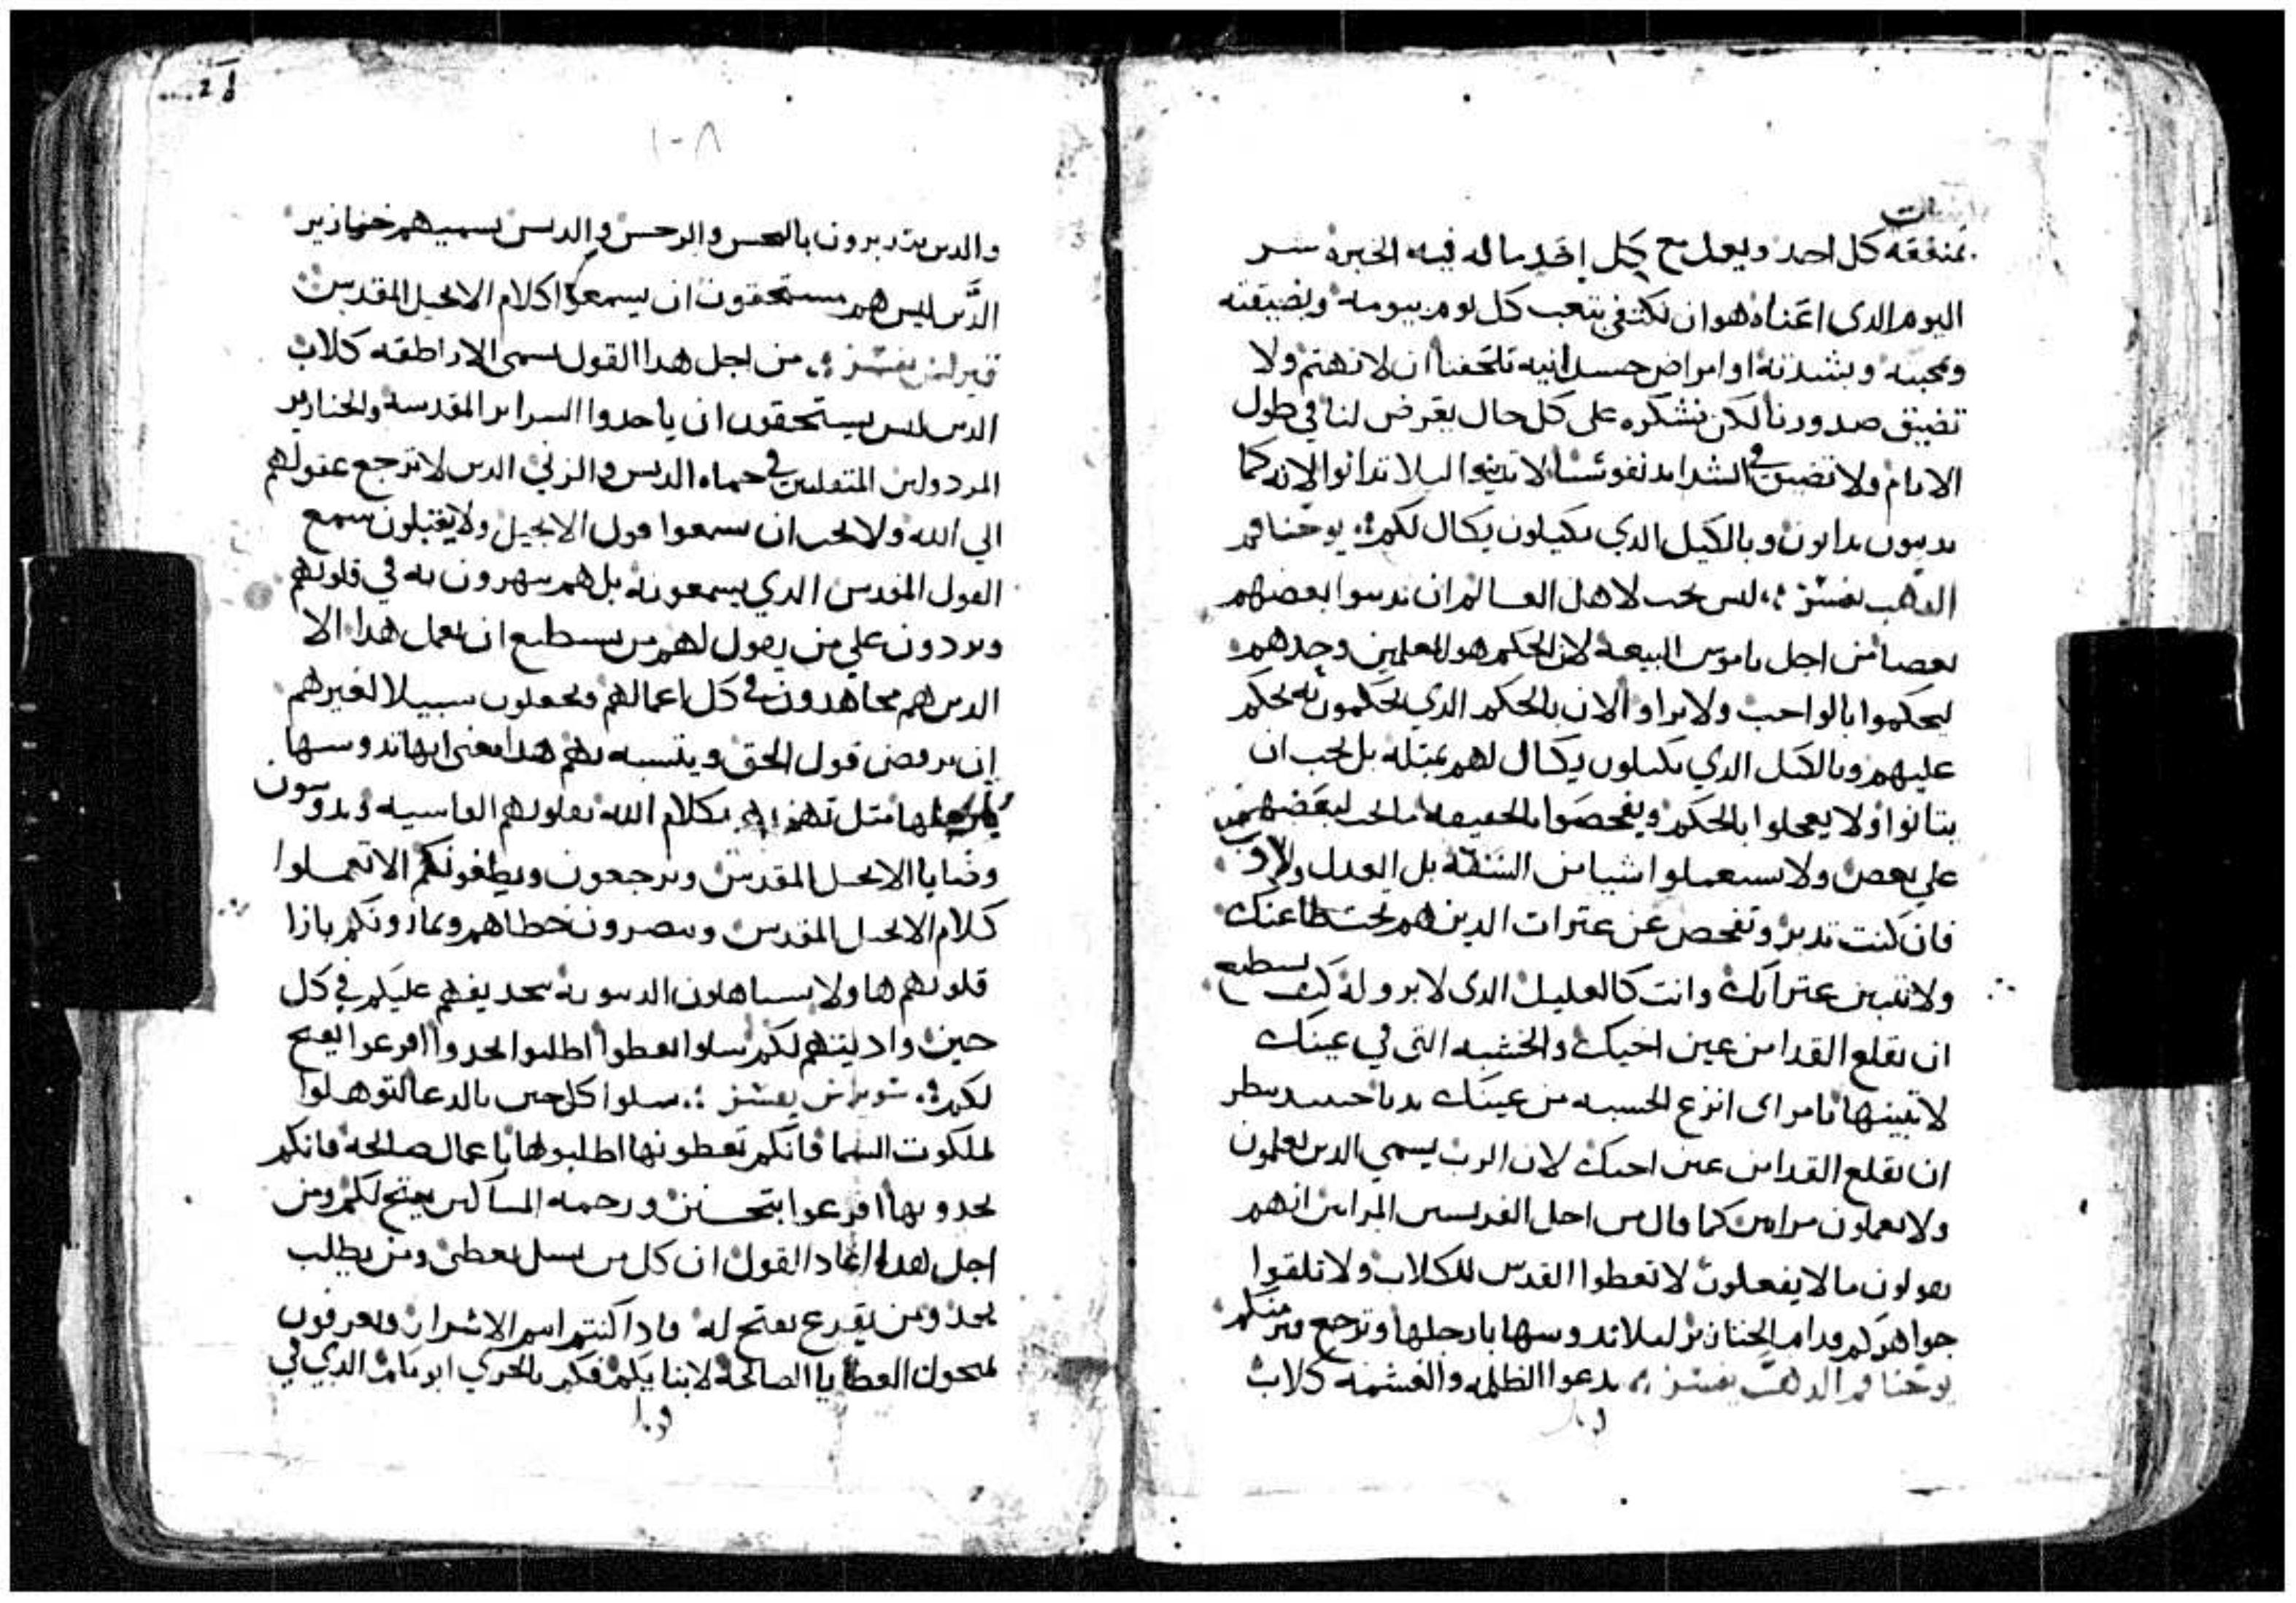 بمنفقه كل احد ويعد مع كل احد ماله فيه الخيره شر
اليوم الدى اعناه هو ان نكتفى بتعب كل يوم بيومه وبضيقته
ومحبته وبشدته او امراض جسدانيه تلحقنا ان لا نهتم ولا
تضيق صدورنا لكن نشكره على كل حال يعرض لنا في طول
الايام ولا تضيق في الشدايد نفوسنا لا تدينوا ليلا تدانوا لانه كما
تدينون تدانون وبالكيل الدي تكيلون يكال لكم يوحنا فم
الدهب يفسر ليس يجب لاهل العالم ان يدينوا بعضهم
بعضا من اجل ناموس البيعة لان الحكم هو للمعلمين وحدهم
ليحكموا بالواجب ولا يراوا لان بالحكم الدي يحكمون به يحكم
عليهم وبالكيل الدي يكيلون يكال لهم بمتله بل يجب ان
يتانوا ولا يعجلوا بالحكم ويفحصوا بالحقيقه ما يجب لبعضهم
علي بعض ولا يستعملوا شيا من الشفقه بل العدل
فان كنت تدين وتفحص عن عترات الدين هم تحت طاعتك
ولا تتبين عتراتك وانت كالعليل الدى لا برو له كيف تستطيع
ان تقلع القدا من عين اخيك والخشبه التي في عينك
لا تتبينها يا مراى انزع الخشبه من عينك بديا حينيد تنظر
ان تقلع القدا من عين اخيك لان الرب يسمي الدين يعلمون
ولا يعملون مرايين كما قال من اجل الفريسين المرايين انهم
يقولون ما لا يفعلون لا تعطوا القدس للكلاب ولا تلقوا
جواهركم قدام الخنازير ليلا تدوسها بارجلها وترجع فتمزقكم
يوحنا فم الدهب يفسر يدعوا الظلمه والغشمه كلاب
١٠٨
والدين يتدبرون بالنجس والرجس والدنس يسميهم خنازير
الدين ليس هم مستحقون ان يسمعوا كلام الانجيل المقدس
يفسر من اجل هدا القول يسمى الاراطقه كلاب
الدين ليس يستحقون ان ياخدوا السراير المقدسه والخنازير
المردولين المتقلبين في حماه الدنس والزني الدين لا ترجع عقولهم
الي الله ولا يجب ان يسمعوا قول الانجيل ولا يقبلون سمع
القول المقدس الدي يسمعونه بل هم يهزون به في قلوبهم
ويردون علي من يقول لهم من يستطيع ان يعمل هدا الا
الدين هم مجاهدون في كل اعمالهم ويجعلون سبيلا لغيرهم
ان يرفض قول الحق ويتشبه بهم هدا معنى انها تدوسها
بارجلها متل تهزيهم بكلام الله بقلوبهم القاسيه ويدوسون
وصايا الانجيل المقدس ويرجعون ويطغونكم الا تعملوا
كلام الانجيل المقدس وينصرون خطاهم ويمارونكم بازا
قلوبهم ها ولا يستاهلون الدينونه بتجديفهم عليكم في كل
حين وادينتهم لكم سلوا تعطوا اطلبوا تجدوا اقرعوا يفتح
لكم يفسر سلوا كل حين بالدعا لتوهلوا
لملكوت السما فانكم تعطونها اطلبوها باعمال صالحه فانكم
تجدوها اقرعوا بتحنن ورحمه المساكين يفتح لكم ومن
اجل هدا اعاد القول ان كل من يسل يعطى ومن يطلب
يجد ومن يقرع يفتح له فادا كنتم انتم الاشرار وتعرفون
تمنحون العطايا الصالحة لابنايكم فكم بالحري ابوكم الدي في